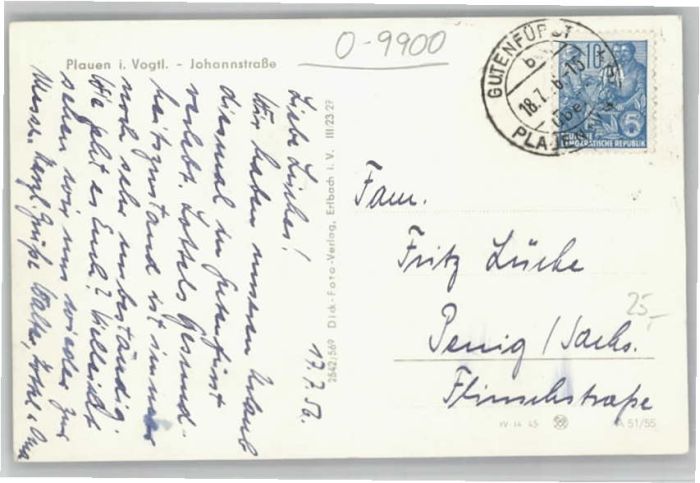 Plauen i. Vogtl. - Johannstraße
O-9900
GUTENFÜRST
b
18.7.56-15
über
PLAUEN
10
5
DEUTSCHE
DEMOKRATISCHE REPUBLIK
17.7.56.
Wir haben unseren Urlaub
diesmal in Gutenfürst
verlebt. Lottels Gesund-
heitszustand ist immer
noch sehr unbeständig.
Wie geht es Euch? Vielleicht
sehen wir uns wieder zur
Messe. Herzl. Grüße Walter, Lottel u. Oma
2542/569 Dick-Foto-Verlag, Erlbach i. V. III/23 29
Fam.
Fritz Lücke
Penig / Sachs.
Flinschstraße
25,-
IV-14-45
A 51/55